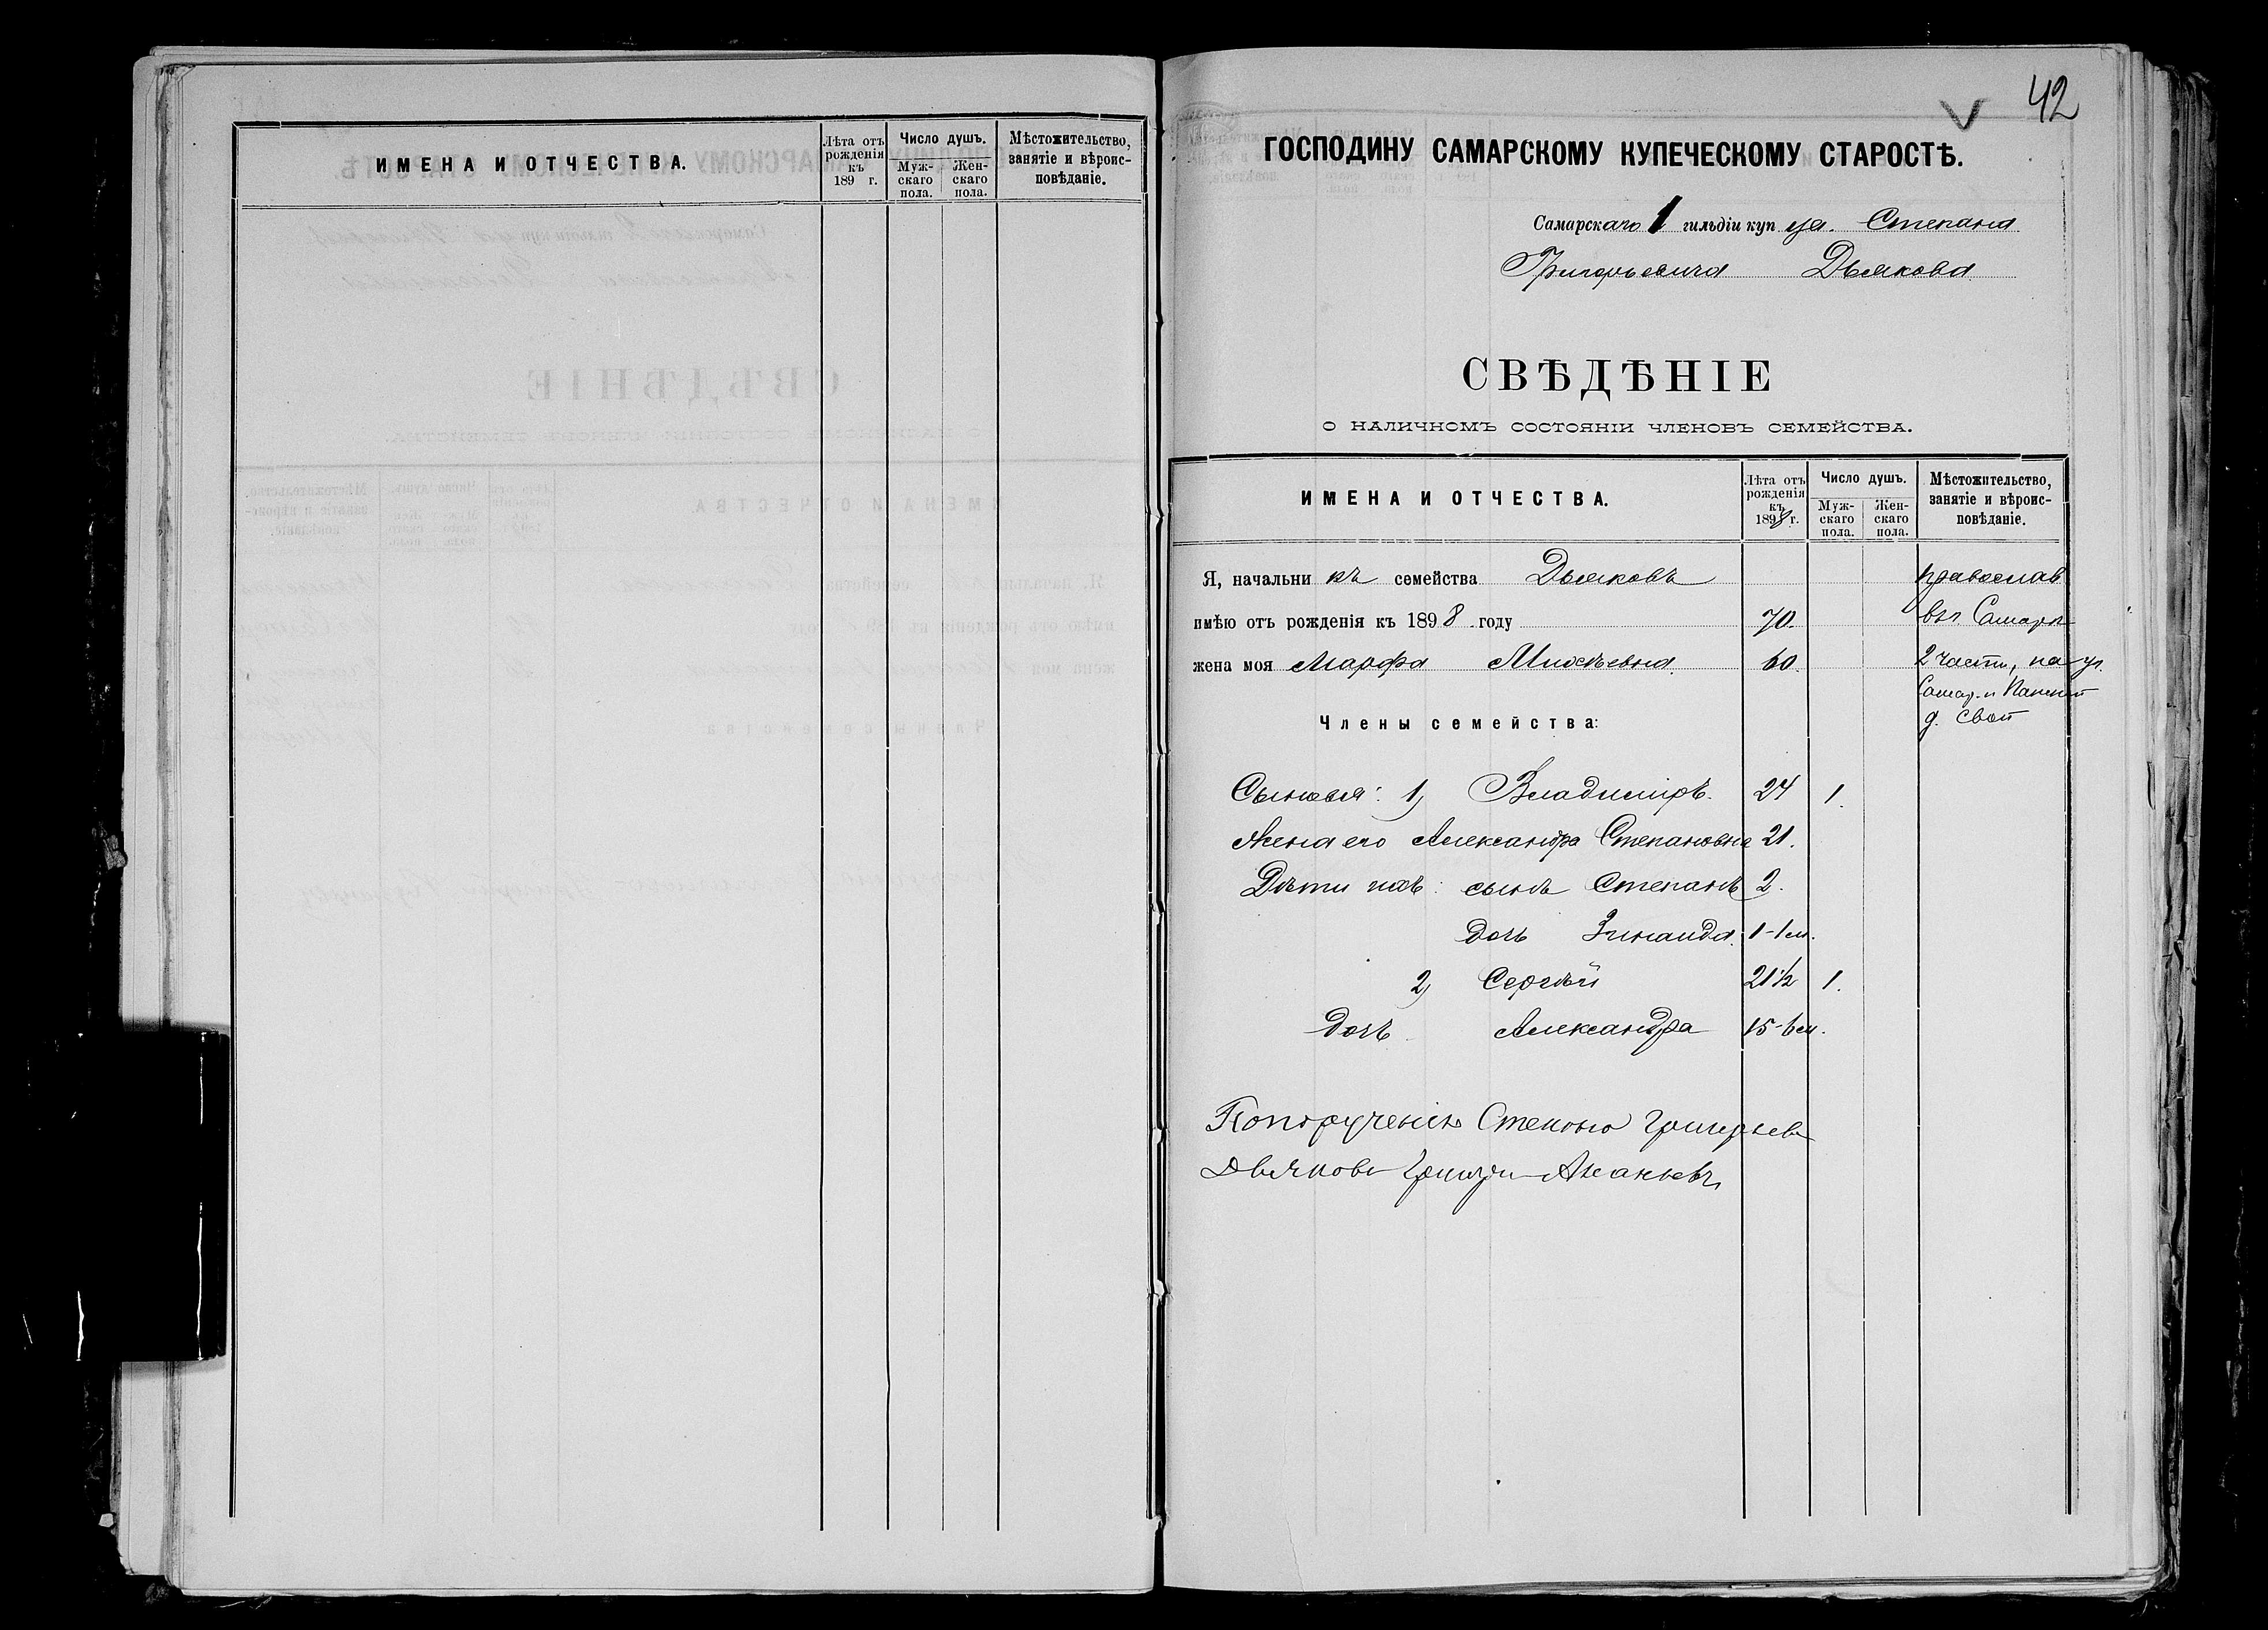 ИМЕНА И ОТЧЕСТВА.
Лѣта отъ рожденія къ 189 г.
Число душъ.
Мужскаго пола.
Женскаго пола.
Мѣстожительство, занятіе и вѣроисповѣданіе.
42
ГОСПОДИНУ САМАРСКОМУ КУПЕЧЕСКОМУ СТАРОСТѢ.
Самарскаго 1 гильдіи купца Степана
Григорьевича Дьякова
СВѢДѢНІЕ
О НАЛИЧНОМЪ СОСТОЯНІИ ЧЛЕНОВЪ СЕМЕЙСТВА.
ИМЕНА И ОТЧЕСТВА.
Лѣта отъ рожденія къ 1898 г.
Число душъ.
Мужскаго пола.
Женскаго пола.
Мѣстожительство, занятіе и вѣроисповѣданіе.
Я, начальникъ семейства Дьяковъ
имѣю отъ рожденія къ 1898 году 70.
жена моя Марфа 60.
православ
въ Самарѣ
2 части, на уг.
Самар. и Панской
д. свой
Члены семейства:
Сыновья: 1) Владиміръ. 24 1.
Жена его Александра Степановна 21.
Дѣти ихъ: сынъ Степанъ 2.
дочь Зинаида. 1-1 м.
2) Сергѣй 21 1/2 1.
дочь Александра 15-6 м.
По порученію Степана Григорьев
Дьякова Григори Ананьевъ